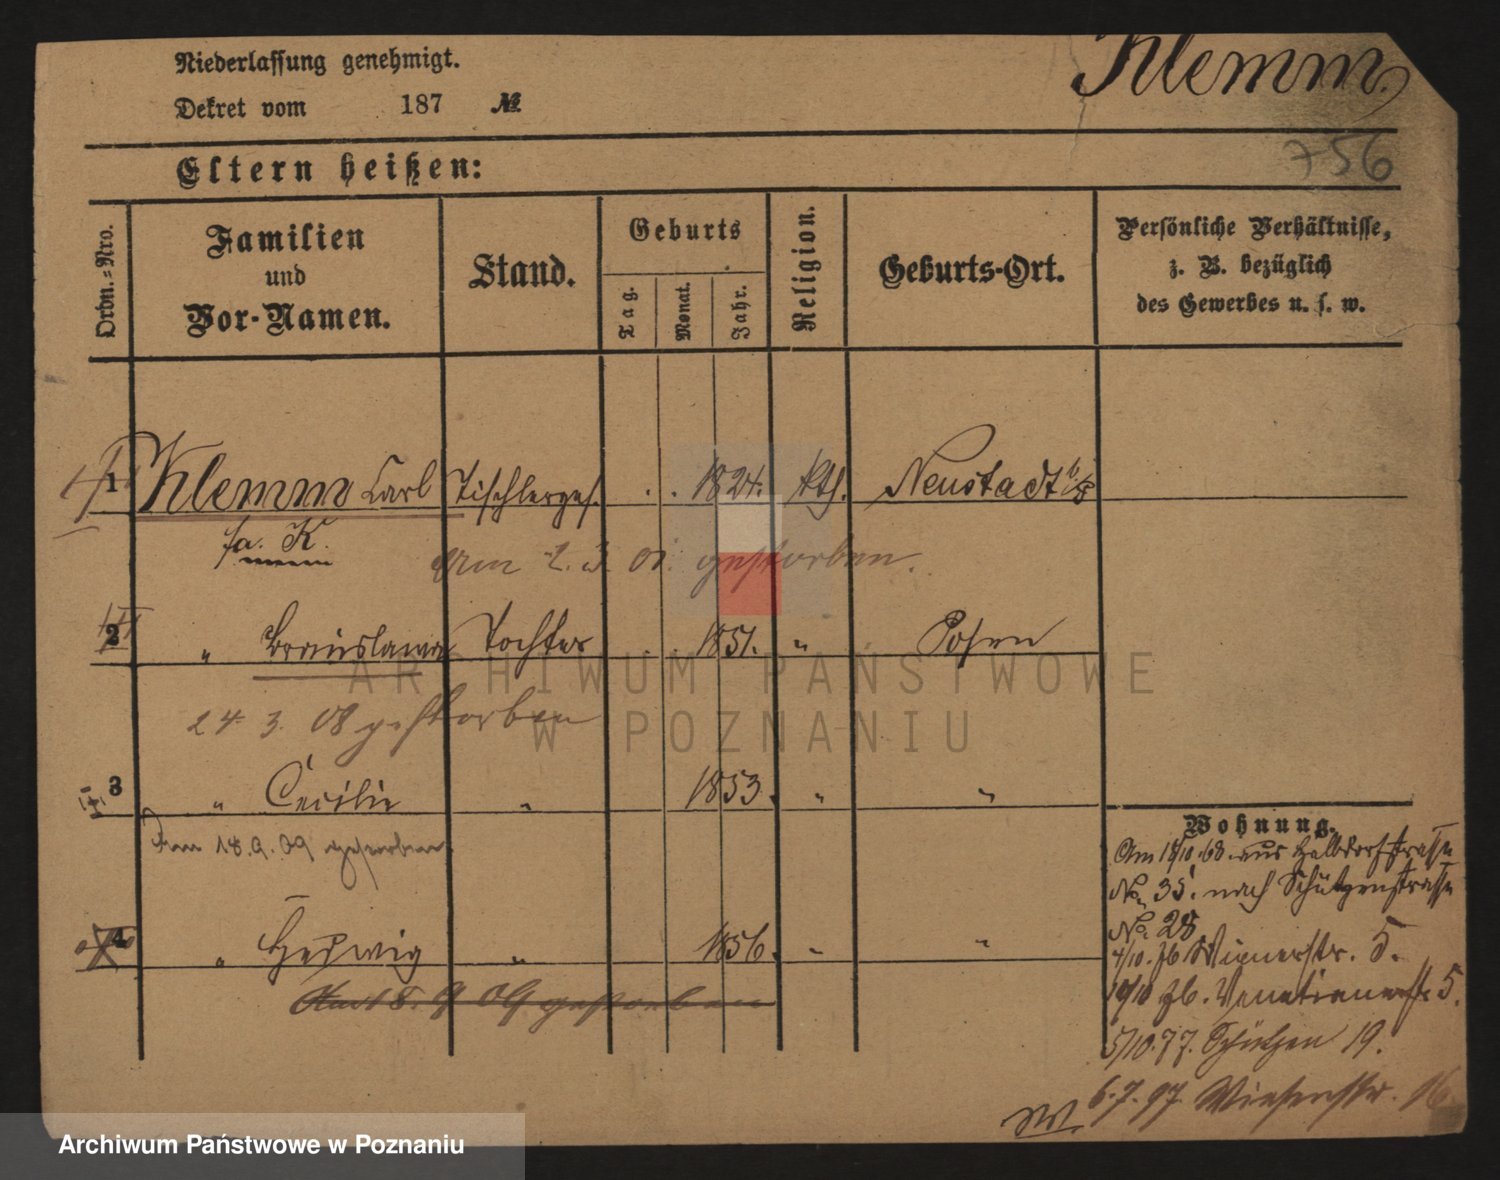 Niederlassung genehmigt.
Klemm.
Dekret vom 187 №
756
Eltern heißen:
Ordn.=Nro.
Familien
und
Vor-Namen.
Stand.
Geburts
Tag.
Monat.
Jahr.
Religion.
Geburts-Ort.
Persönliche Verhältnisse,
z. B. bezüglich
des Gewerbes u. s. w.
1 Klemm Carl Tischlerges. . . 1824. Kth. Neustadt
fa. K.
Am 2. 3. 01. gestorben.
2 " Bronislawa Tochter . . 1851. " Posen
24. 3. 08 gestorben
3 " Cecilie " 1853. " "
Am 18. 9. 09 gestorben
4 " Hedwig " 1856. " "
9 09 gestorben
Wohnung.
Am 18/10 68 aus Halbdorfstrasse
No. 35. nach Schützenstrasse
No. 28
4/10. 76 Wienerstr. 5.
10/10 76. Venetianerstr 5.
5/10. 77. Schützen 19.
6. 7. 97. Wiesenstr. 16
ARCHIWUM PAŃSTWOWE
W POZNANIU
Archiwum Państwowe w Poznaniu